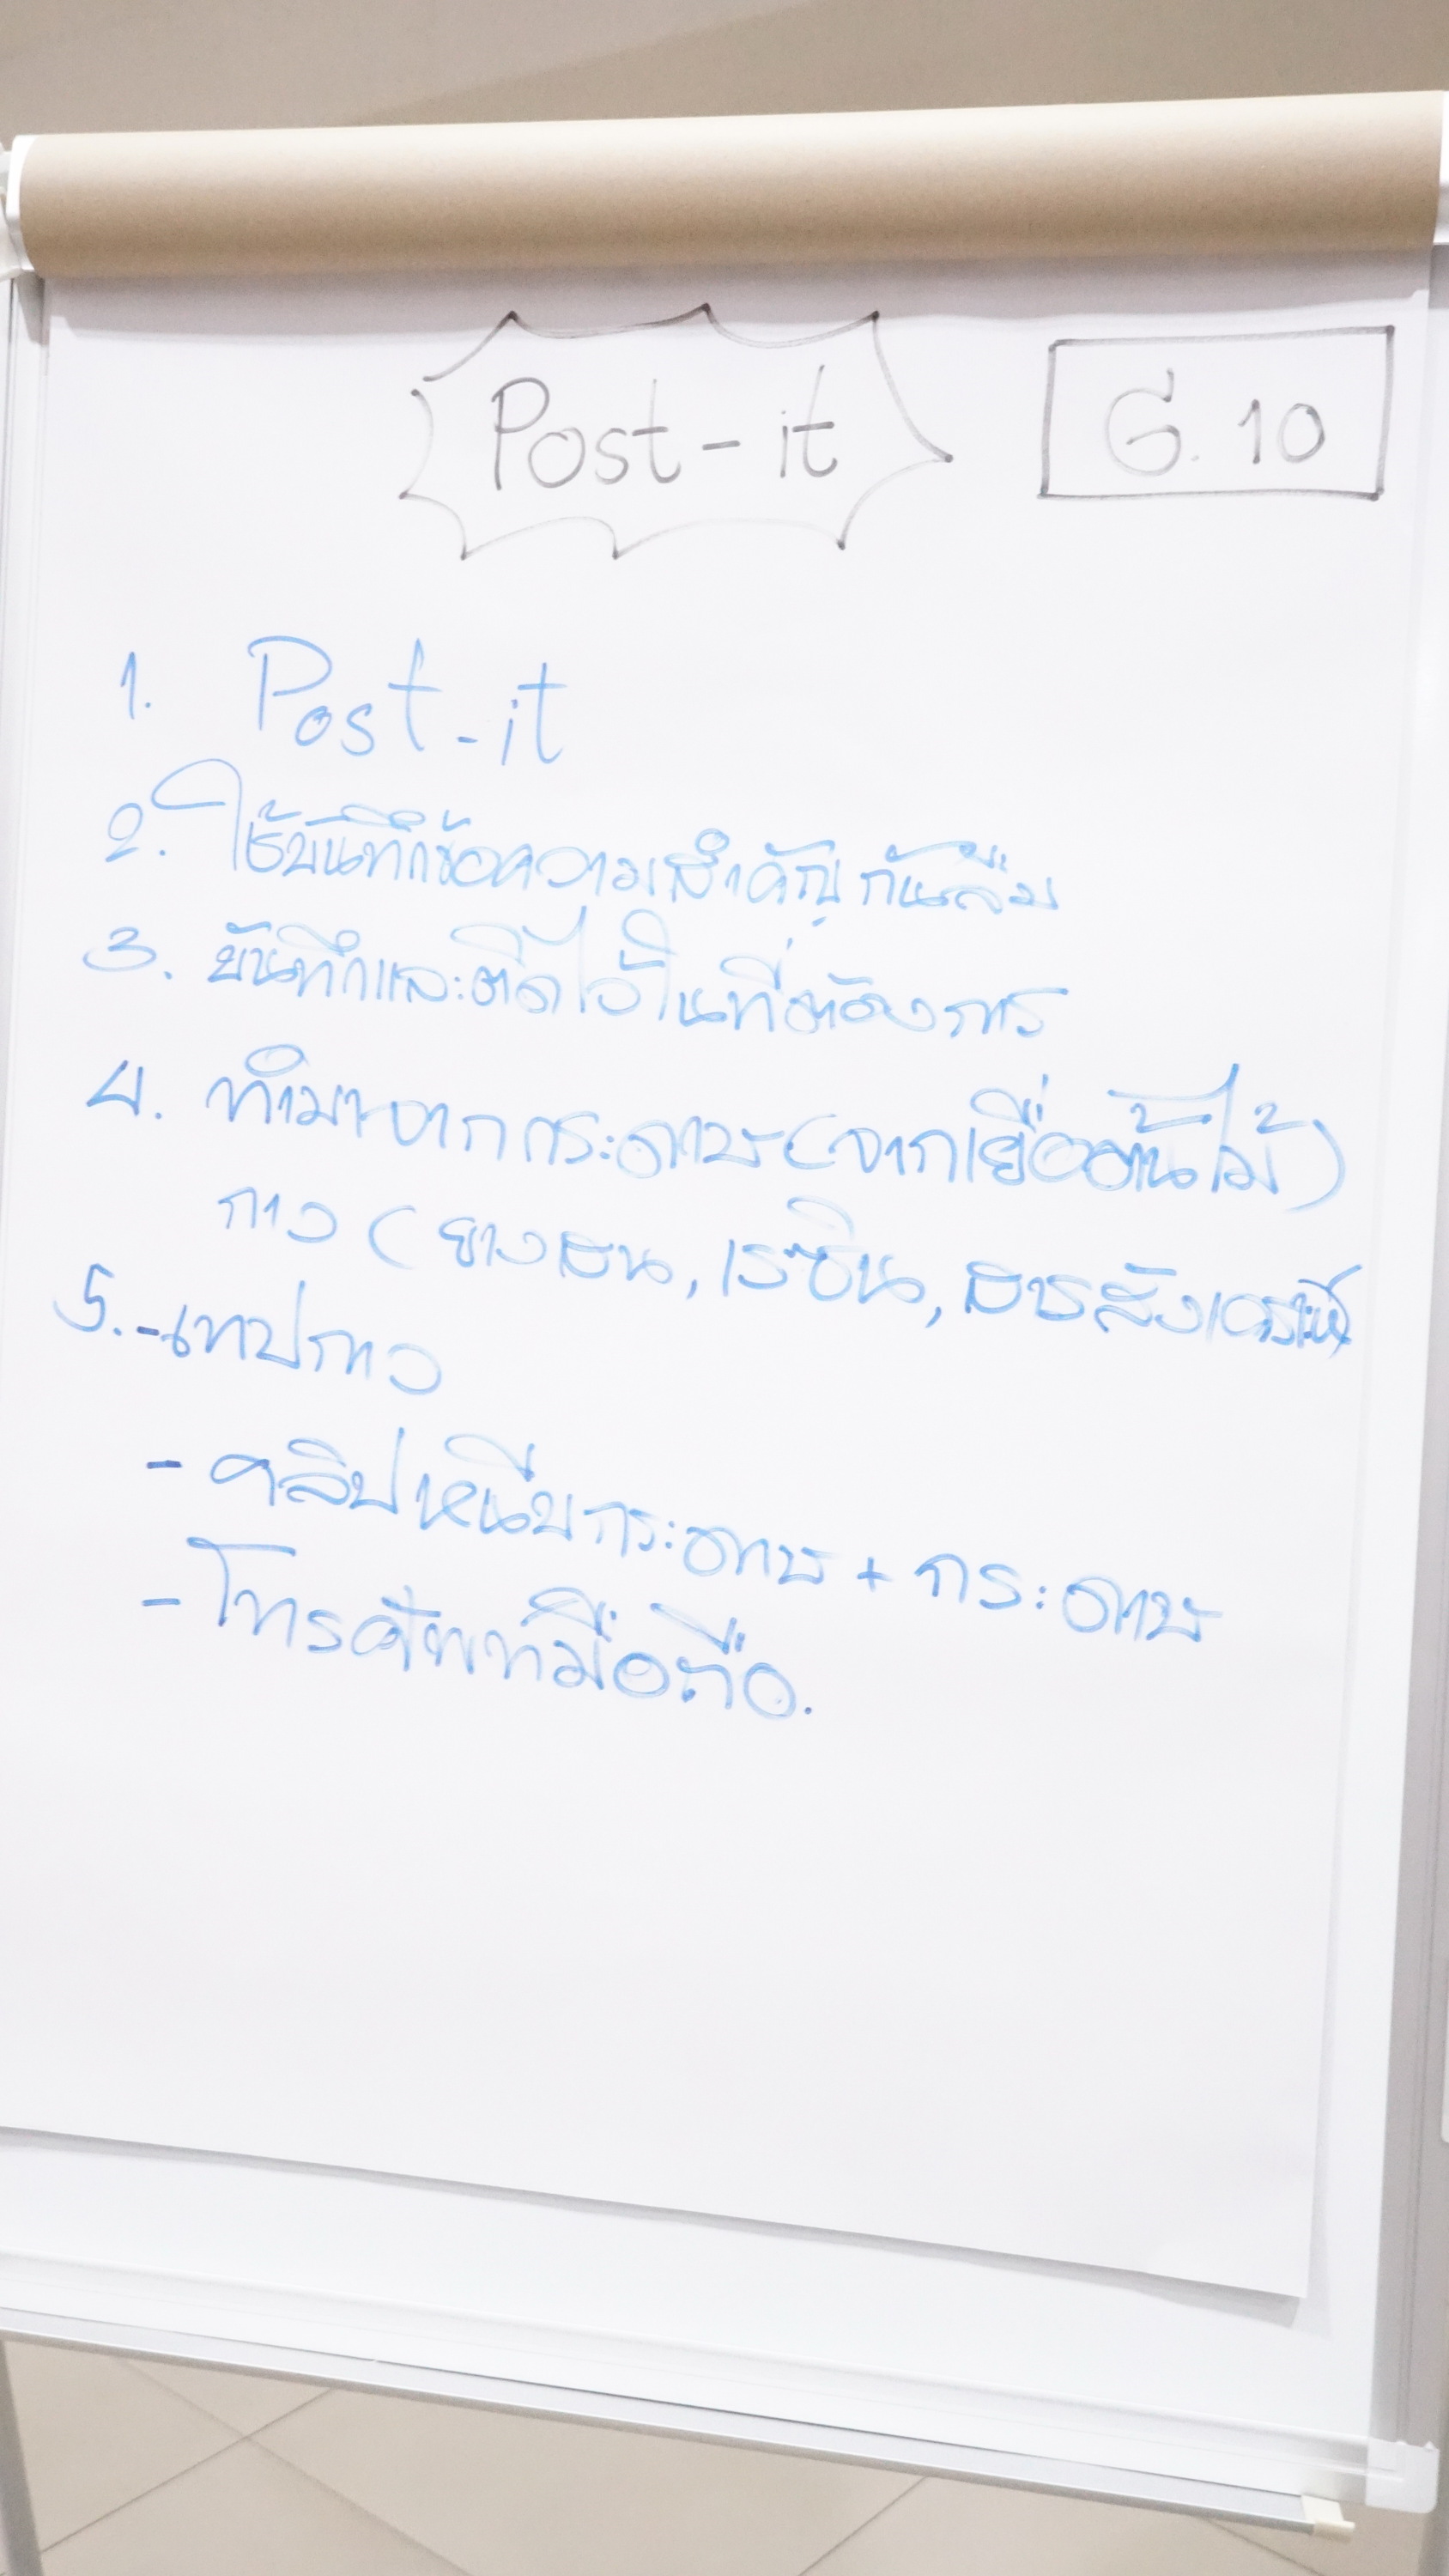 Post-it
G. 10
1. Post-it
2. ใช้บันทึกข้อความสำคัญ กันลืม
3. บันทึกและติดไว้ในที่ต้องการ
4. ทำมาจากกระดาษ (จากเยื่อต้นไม้)
กาว (ยางสน, เรซิน, สารสังเคราะห์)
5. - เทปกาว
- คลิปหนีบกระดาษ + กระดาษ
- โทรศัพท์มือถือ.